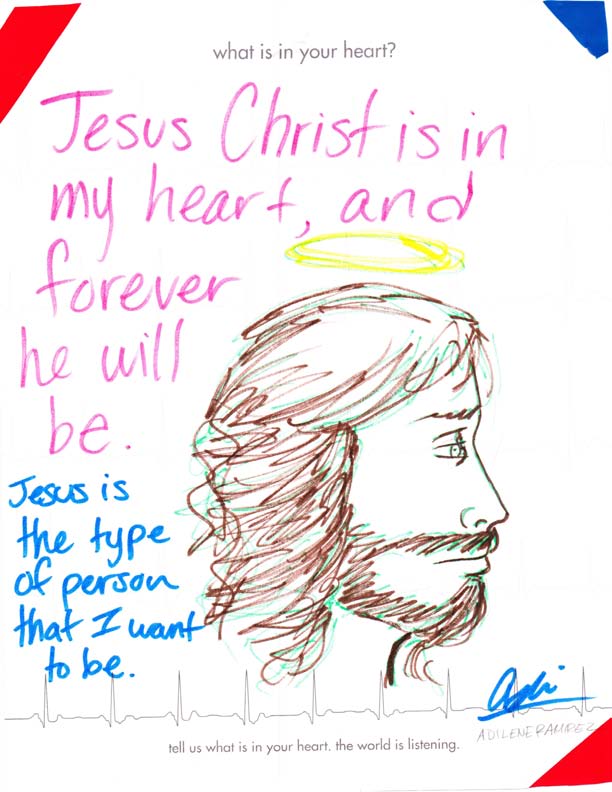 what is in your heart?
Jesus Christ is in
my heart, and
forever
he will
be.
Jesus is
the type
of person
that I want
to be.
Adi
ADILENE RAMIREZ
tell us what is in your heart. the world is listening.